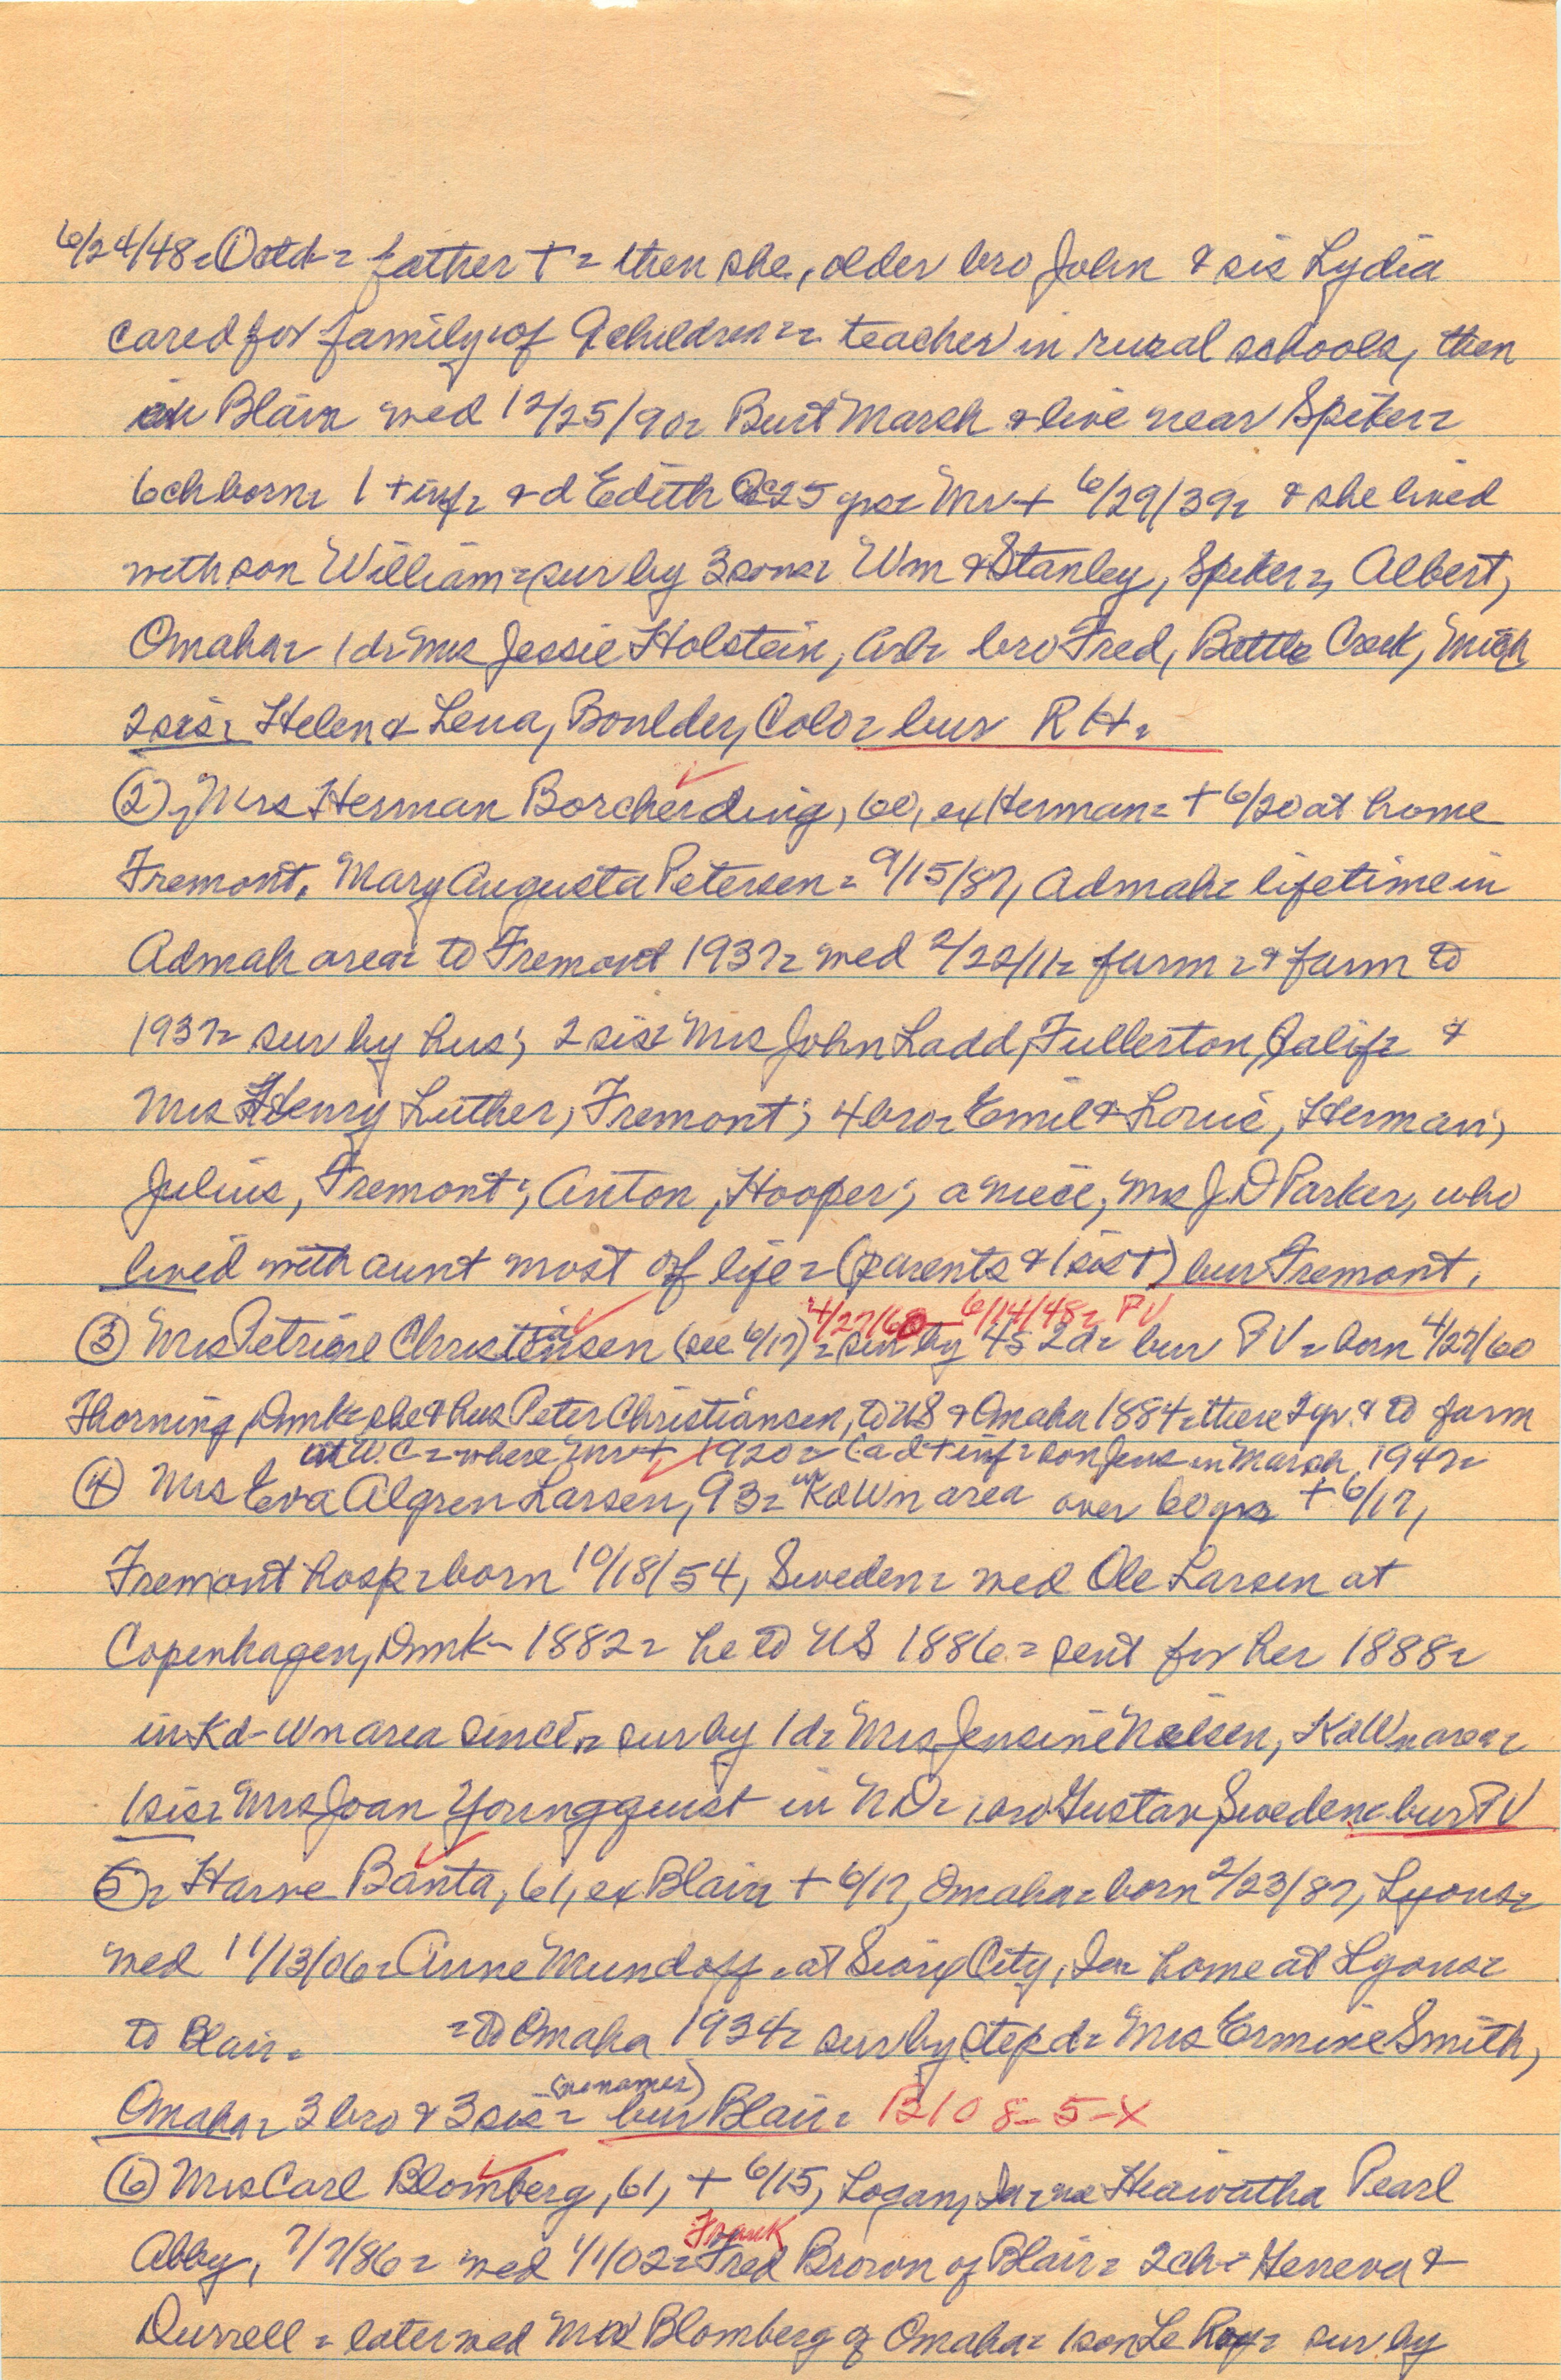 6/24/48 = ① ctd = father + = then she, older bro John & sis Lydia
cared for family of 9 children = teacher in rural schools, then
in Blair wed 12/25/90 = Burt Marsh & live near Spiker =
6 ch born = 1 + inf = & d Edith 25 yrs = Mr + 6/29/39 = & she lived
with son William = sur by 3 sons = Wm & Stanley, Spiker =, Albert,
Omaha = 1 d = Mrs Jessie Holstein, Arl = bro Fred, Battle Creek, Mich
2 sis = Helen & Lena, Boulder, Colo = bur RH =
② Mrs Herman Borcherding, 60, ex Herman = + 6/20 at home
Fremont. Mary Augusta Petersen = 9/15/87, Admah = lifetime in
Admah area = to Fremont 1937 = wed 2/22/11 = farm = & farm to
1937 = sur by hus; 2 sis = Mrs John Ladd, Fullerton, Calif = &
Mrs Henry Luther, Fremont; 4 bro = Emil & Louie, Herman;
Julius, Fremont; Anton, Hooper; a niece, Mrs J.D Parker, who
lived with aunt most of life = (parents & 1 sis +) bur Fremont.
4/27/60 — 6/14/48 = PV
③ Mrs Petrine Christiansen (see 6/17) = sur by 4s 2d = bur PV = born 4/27/60
Thorning, Dmk = she & hus Peter Christiansen, to US & Omaha 1884 = there 2 yr. & to farm
at W.C = where Mr + 1920 = (a d + inf = son Jens in March 1947 =
④ Mrs Eva Algren Larsen, 93 = in KdWn area over 60 yrs + 6/17,
Fremont hosp = born 10/18/54, Sweden = wed Ole Larsen at
Copenhagen, Dmk - 1882 = he to US 1886 = sent for her 1888 =
in Kd-Wn area since = sur by 1 d = Mrs Jensine Nielsen, KdWn area =
1 sis = Mrs Joan Youngquist in ND = bro Gustav, Sweden = bur PV
⑤ = Harve Banta, 61, ex Blair + 6/17, Omaha = born 2/23/87, Lyons =
wed 11/13/06 = Anne Mundoff = at Sioux City, Ia = home at Lyons =
to Blair = = to Omaha 1934 = sur by step d = Mrs Ermine Smith,
(no names)
Omaha = 3 bro & 3 sis = bur Blair = B108-5-X
⑥ Mrs Carl Blomberg, 61, + 6/15, Logan, Ia = Heiwatha Pearl
Frank
Abby, 7/7/86 = wed 1/1/02 = Fred Brown of Blair = 2 ch = Heneva &
Durrell = later wed Mr Blomberg of Omaha = 1 son Le Roy = sur by